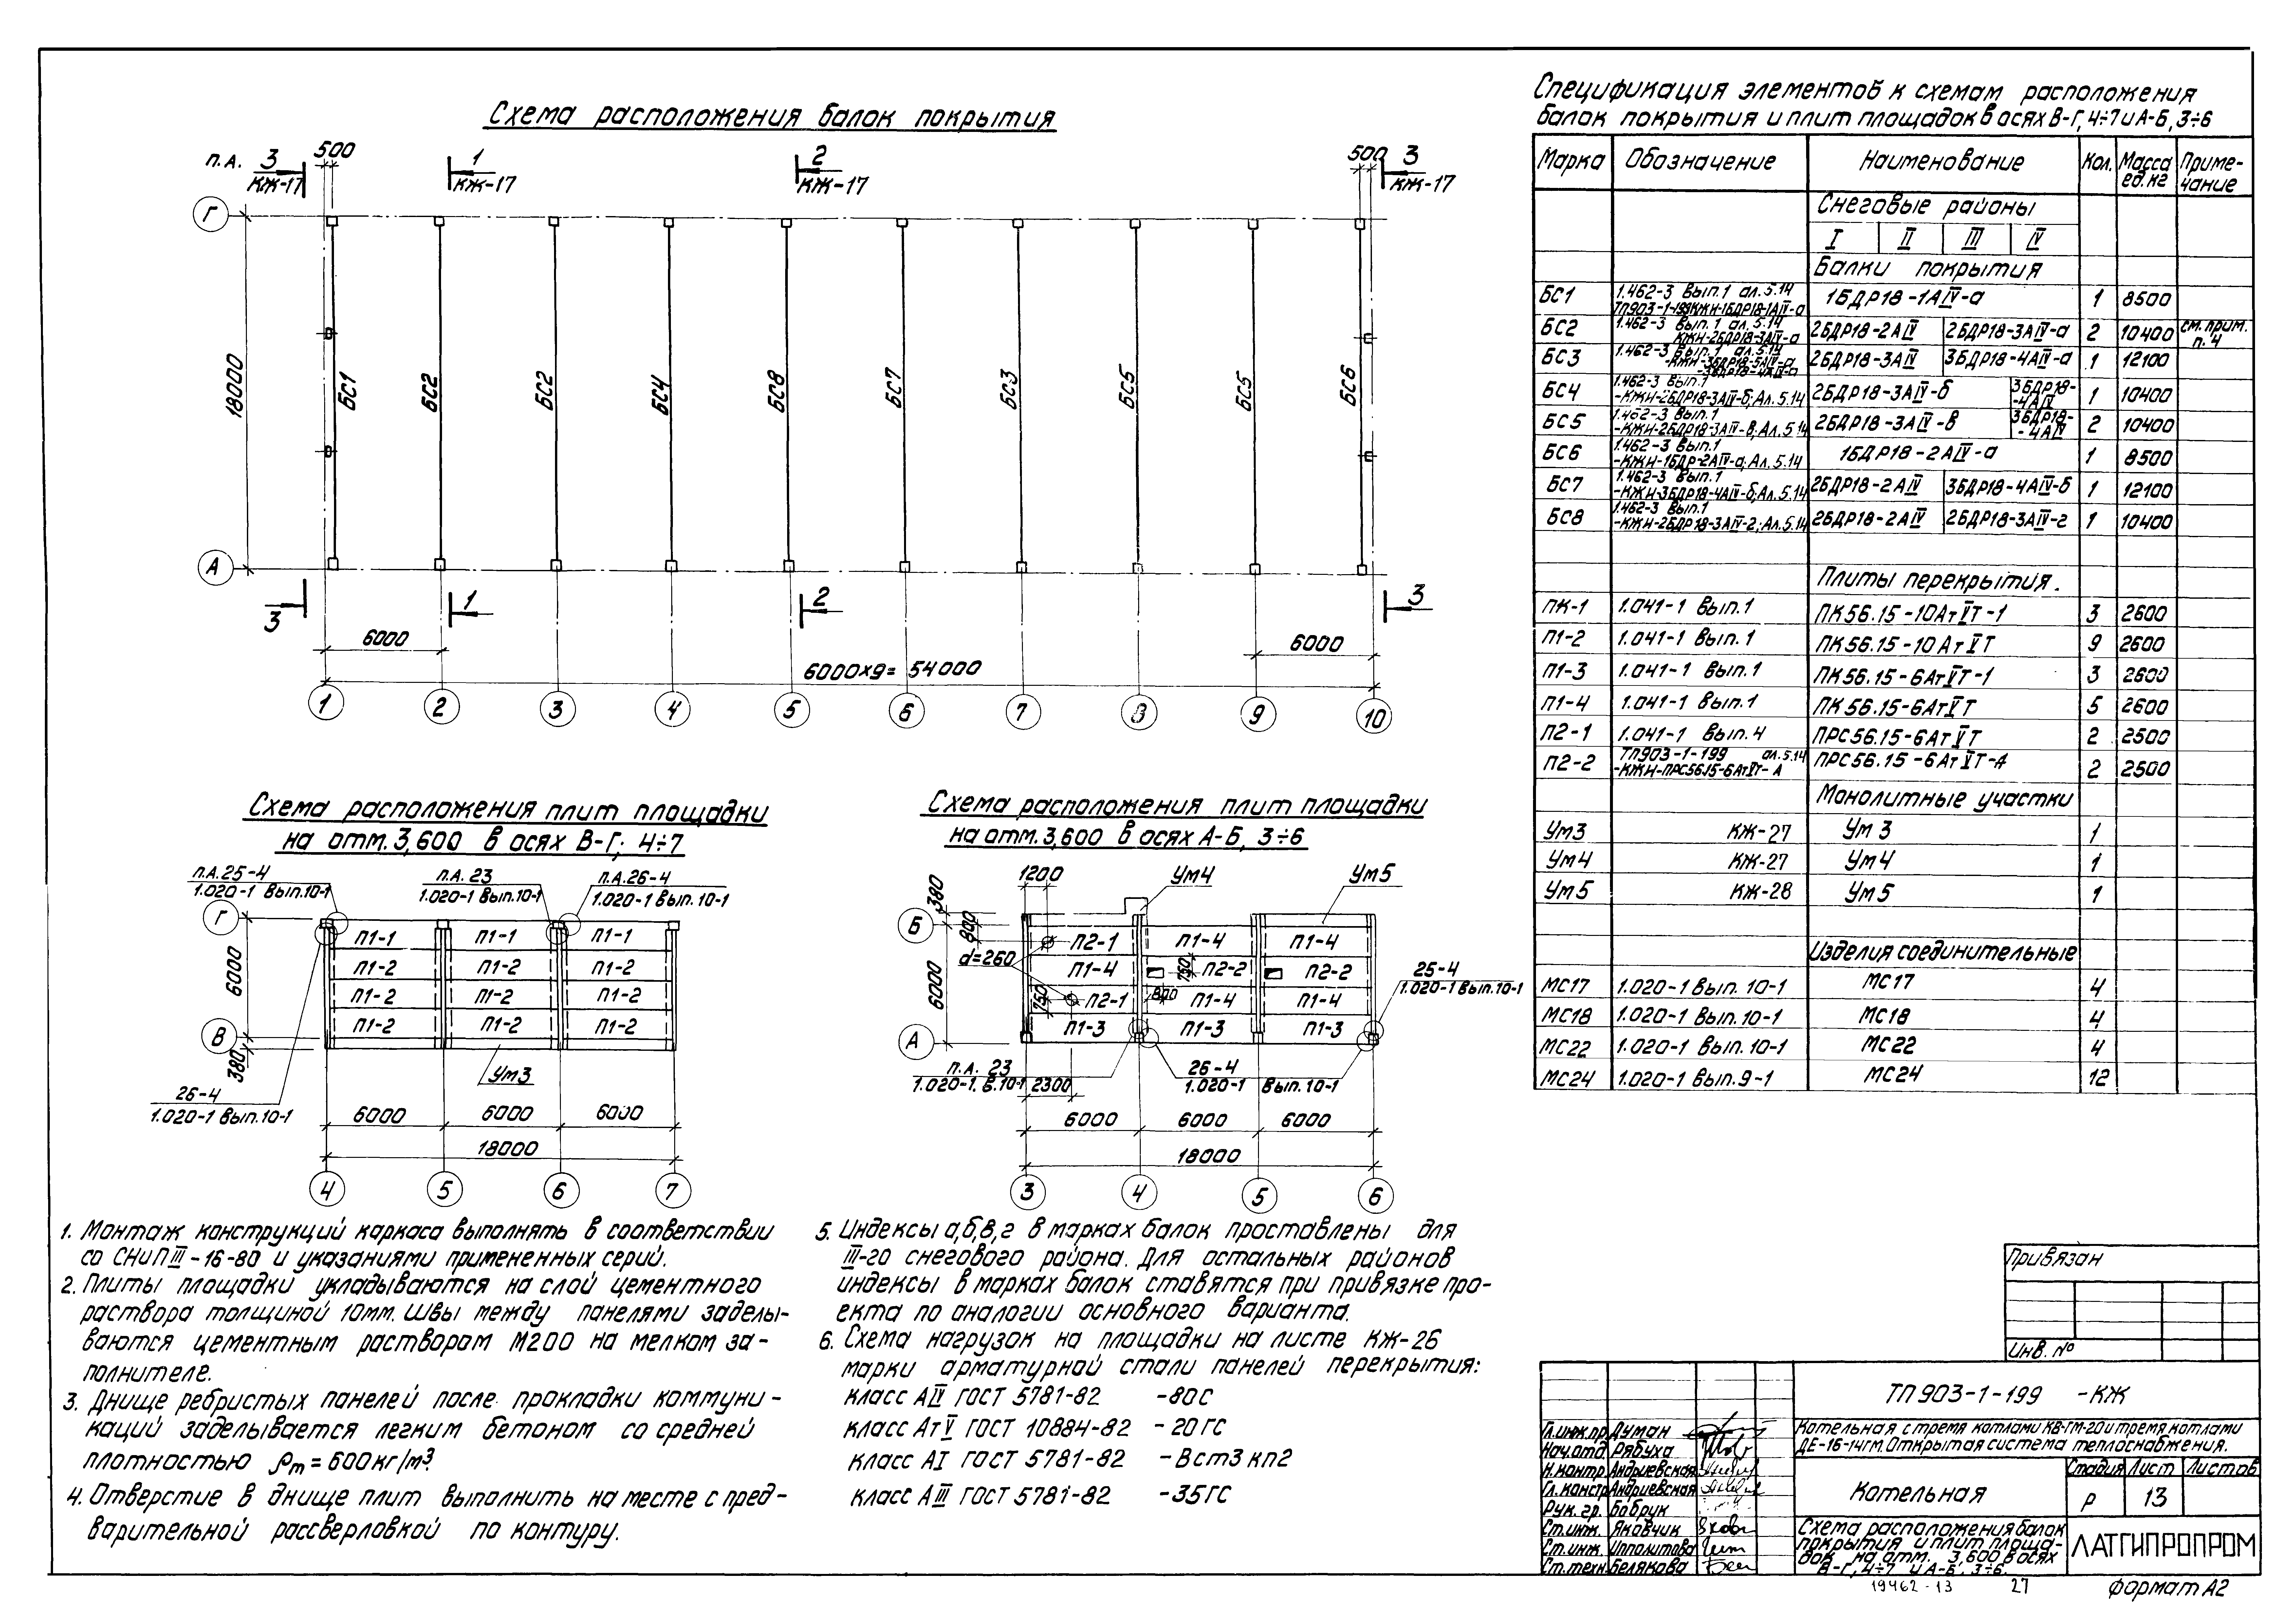 Схема расположения балок покрытия
п.А. 3 КЖ-17
500
1 КЖ-17
2 КЖ-17
500
3 КЖ-17
Г
18000
БС1 БС2 БС2 БС4 БС8 БС7 БС3 БС5 БС5 БС6
А
3 1 2 3
6000 6000
6000х9= 54000
1 2 3 4 5 6 7 8 9 10
Схема расположения плит площадки
на отм. 3,600 в осях В-Г; 4÷7
п.А.25-4
1.020-1 вып.10-1
п.А. 23
1.020-1 вып.10-1
п.А.26-4
1.020-1 вып.10-1
Г
П1-1 П1-1 П1-1
П1-2 П1-2 П1-2
6000
П1-2 П1-2 П1-2
П1-2 П1-2 П1-2
В
380
Ум3
26-4
1.020-1 вып.10-1
6000 6000 6000
18000
4 5 6 7
Схема расположения плит площадки
на отм. 3,600 в осях А-Б, 3÷6
1200
Ум4
Ум5
380
Б
800
П2-1 П1-4 П1-4
d=260
П1-4 750 П2-2 П2-2
6000
25-4
1.020-1 вып.10-1
750 П2-1 800 П1-4 П1-4
П1-3 П1-3 П1-3
А
п.А. 23
1.020-1. в.10-1
2300
26-4
1.020-1 вып.10-1
6000 6000 6000
18000
3 4 5 6
1. Монтаж конструкций каркаса выполнять в соответствии
со СНиП III-16-80 и указаниями примененных серий.
2. Плиты площадки укладываются на слой цементного
раствора толщиной 10мм. Швы между панелями заделы-
ваются цементным раствором М200 на мелком за-
полнителе.
3. Днище ребристых панелей после прокладки коммуни-
каций заделывается легким бетоном со средней
плотностью ρm = 600кг/м³.
4. Отверстие в днище плит выполнить на месте с пред-
варительной рассверловкой по контуру.
5. Индексы а,б,в,г в марках балок проставлены для
III-го снегового района. Для остальных районов
индексы в марках балок ставятся при привязке про-
екта по аналогии основного варианта.
6. Схема нагрузок на площадки на листе КЖ-26
марки арматурной стали панелей перекрытия:
класс АIV ГОСТ 5781-82 -80С
класс АтV ГОСТ 10884-82 -20ГС
класс АI ГОСТ 5781-82 -Вст3кп2
класс АIII ГОСТ 5781-82 -35ГС
Спецификация элементов к схемам расположения
балок покрытия и плит площадок в осях В-Г, 4÷7 и А-Б, 3÷6
Марка Обозначение Наименование Кол. Масса ед.кг Приме-чание
Снеговые районы
I II III IV
Балки покрытия
БС1 1.462-3 вып.1 ал.5.14 ТП903-1-199КЖН-1БДР18-1АIV-а 1БДР18-1АIV-а 1 8500
БС2 1.462-3 вып.1 ал.5.14 КЖН-2БДР18-3АIV-а 2БДР18-2АIV 2БДР18-3АIV-а 2 10400 см.прим. п.4
БС3 1.462-3 вып.1 ал.5.14 -3БДР18-4АIV-а 2БДР18-3АIV 3БДР18-4АIV-а 1 12100
БС4 1.462-3 вып.1 -КЖН-2БДР18-3АIV-б; Ал.5.14 2БДР18-3АIV-б 3БДР18-4АIV 1 10400
БС5 1.462-3 вып.1 -КЖН-2БДР18-3АIV-в; Ал.5.14 2БДР18-3АIV-в 3БДР18-4АIV 2 10400
БС6 1.462-3 вып.1 -КЖН-1БДР-2АIV-а; Ал.5.14 1БДР18-2АIV-а 1 8500
БС7 1.462-3 вып.1 -КЖН-3БДР18-4АIV-б; Ал.5.14 2БДР18-2АIV 3БДР18-4АIV-б 1 12100
БС8 1.462-3 вып.1 -КЖН-2БДР18-3АIV-г; Ал.5.14 2БДР18-2АIV 2БДР18-3АIV-г 1 10400
Плиты перекрытия.
ПК-1 1.041-1 вып.1 ПК56.15-10АтVТ-1 3 2600
П1-2 1.041-1 вып.1 ПК56.15-10АтVТ 9 2600
П1-3 1.041-1 вып.1 ПК56.15-6АтVТ-1 3 2600
П1-4 1.041-1 вып.1 ПК56.15-6АтVТ 5 2600
П2-1 1.041-1 вып.4 ПРС56.15-6АтVТ 2 2500
П2-2 ТП903-1-199 ал.5.14 -КЖН-ПРС56.15-6АтVТ-А ПРС56.15-6АтVТ-А 2 2500
Монолитные участки
Ум3 КЖ-27 Ум3 1
Ум4 КЖ-27 Ум4 1
Ум5 КЖ-28 Ум5 1
Изделия соединительные
МС17 1.020-1 вып. 10-1 МС17 4
МС18 1.020-1 вып.10-1 МС18 4
МС22 1.020-1 вып.10-1 МС22 4
МС24 1.020-1 вып.9-1 МС24 12
Привязан
Инв. №
ТП903-1-199 -КЖ
Котельная с тремя котлами КВ-ГМ-20 и тремя котлами
ДЕ-16-14ГМ. Открытая система теплоснабжения.
Гл.инж.пр. Думан
Нач.отд. Рябуха
Н.контр. Андриевская
Гл. констр. Андриевская
Рук. гр. Бобрук
Ст.инж. Яковчик
Ст.инж. Ипполитова
Ст.техн. Белякова
Котельная
Стадия Лист Листов
Р 13
Схема расположения балок
покрытия и плит площа-
док на отм. 3,600 в осях
В-Г, 4÷7 и А-Б, 3÷6.
ЛАТГИПРОПРОМ
19462-13 27
формат А2